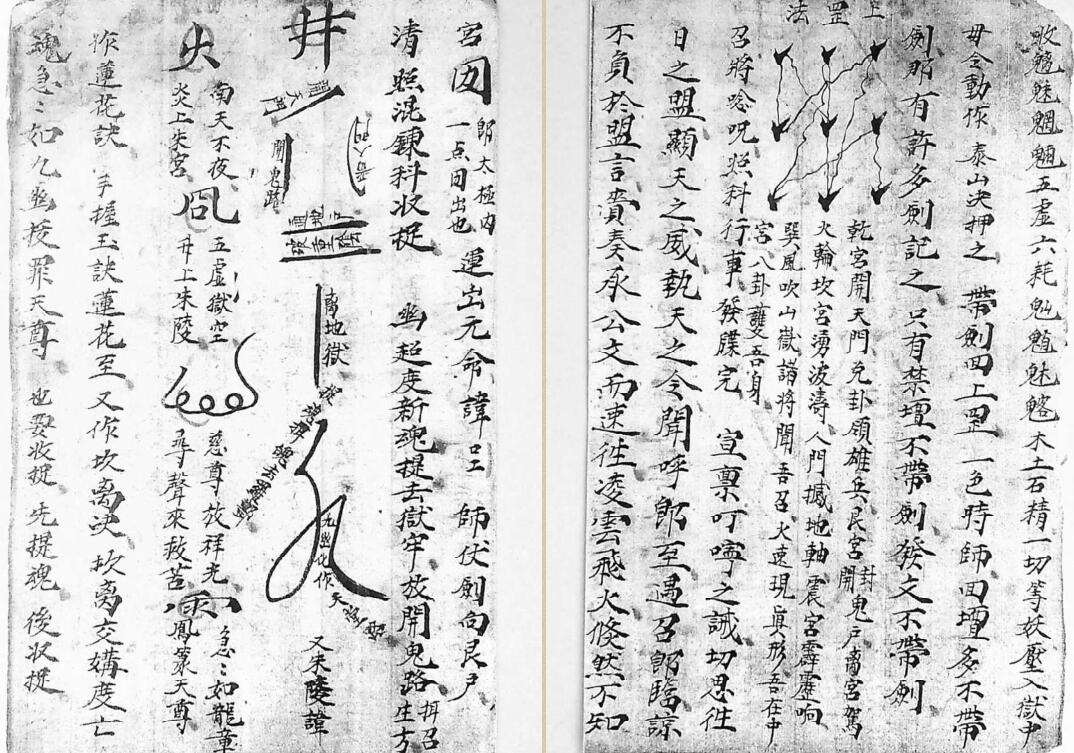 收魑魅魍魎五虛六耗魁 魅 木土石精一切等妖壓入獄中
毋令動作 泰山决押之 帶劍 上罡一色時師回壇多不帶
劍那有許多劍記之 只有禁壇不帶劍發文不帶劍
上罡法
乾宮開天門兌卦領雄兵艮宮封開鬼户离宮駕
火輪坎宮湧波濤人門撼地軸震宮霹靂响
巽風吹山嶽諸將聞吾召火速現真形吾在中
宮八卦護吾身
召將唸呪照科行事 發牒完 宣禀叮嚀之誡切思徃
日之盟顯天之威執天之令聞呼郎至遇召郎臨諒
不負於盟言賫奏承公文而速徃凌雲飛火倏然不知
宮 郎太極内一点田出也 運出元命諱 師伏劍向艮户
清照混鍊科收捉 幽超度新魂提去獄牢放開鬼路 召生方
井
開天門
開鬼路
离地獄
九幽化作天堂
又朱陵諱
火 南天不夜炎上朱宮
五虛獄空 上朱陵
慈尊放祥光尋聲來救苦
急〻如龍章鳳篆天尊
作蓮花訣 手握玉訣蓮花至 又作坎离决 坎离交媾度亡
魂急〻如九幽拔罪天尊 也要收捉 先提魂 後收捉